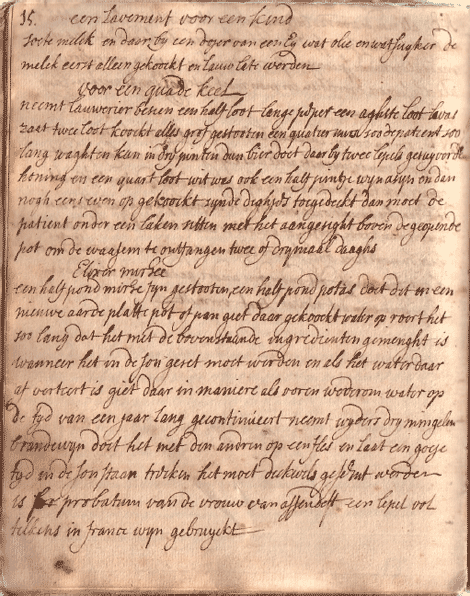 35. een lavement voor een kind
soete melck en daar by een dojer van een Ey wat olie en wat suyker de
melck eerst alleen gekoockt en lauw late werden
voor een quade keel
neemt lauwerier besien een half loot lange peper een aghste loot
zaat twee loot koockt alles grof gestooten een quatier uurs soo de patient soo
lang waghten kan in dry pinten dun bier doet daar by twee lepels gesuyverde
honing en een quart loot wit was ook een half pintje wyn asyn en dan
nogh eens even op gekoockt synde dight toegedeckt dan moet de
patient onder een laken sitten met het aangesight boven de geopende
pot om de waassem te ontfangen twee of drymaal daaghs
Elixer mirhee
een half pond mirhe fyn gestooten, een half pond potas doet dit in een
nieuwe aarde platte pot of pan giet daar gekoockt water op roert het
soo lang dat het met de bovenstaande ingredienten gemenght is
wanneer het in de son geset moet werden en als het water daar
af verteert is giet daar in maniere als voren wederom water op
de tyd van een jaar lang gecontinueert neemt wyders dry mingelen
brandewyn doet het met den andren op een fles en laat een goeje
tyd in de son staan trecken het moet dickwils geschut worden
is probatum van de vrouw van assendelft een lepel vol
telkens in france wyn gebruyckt